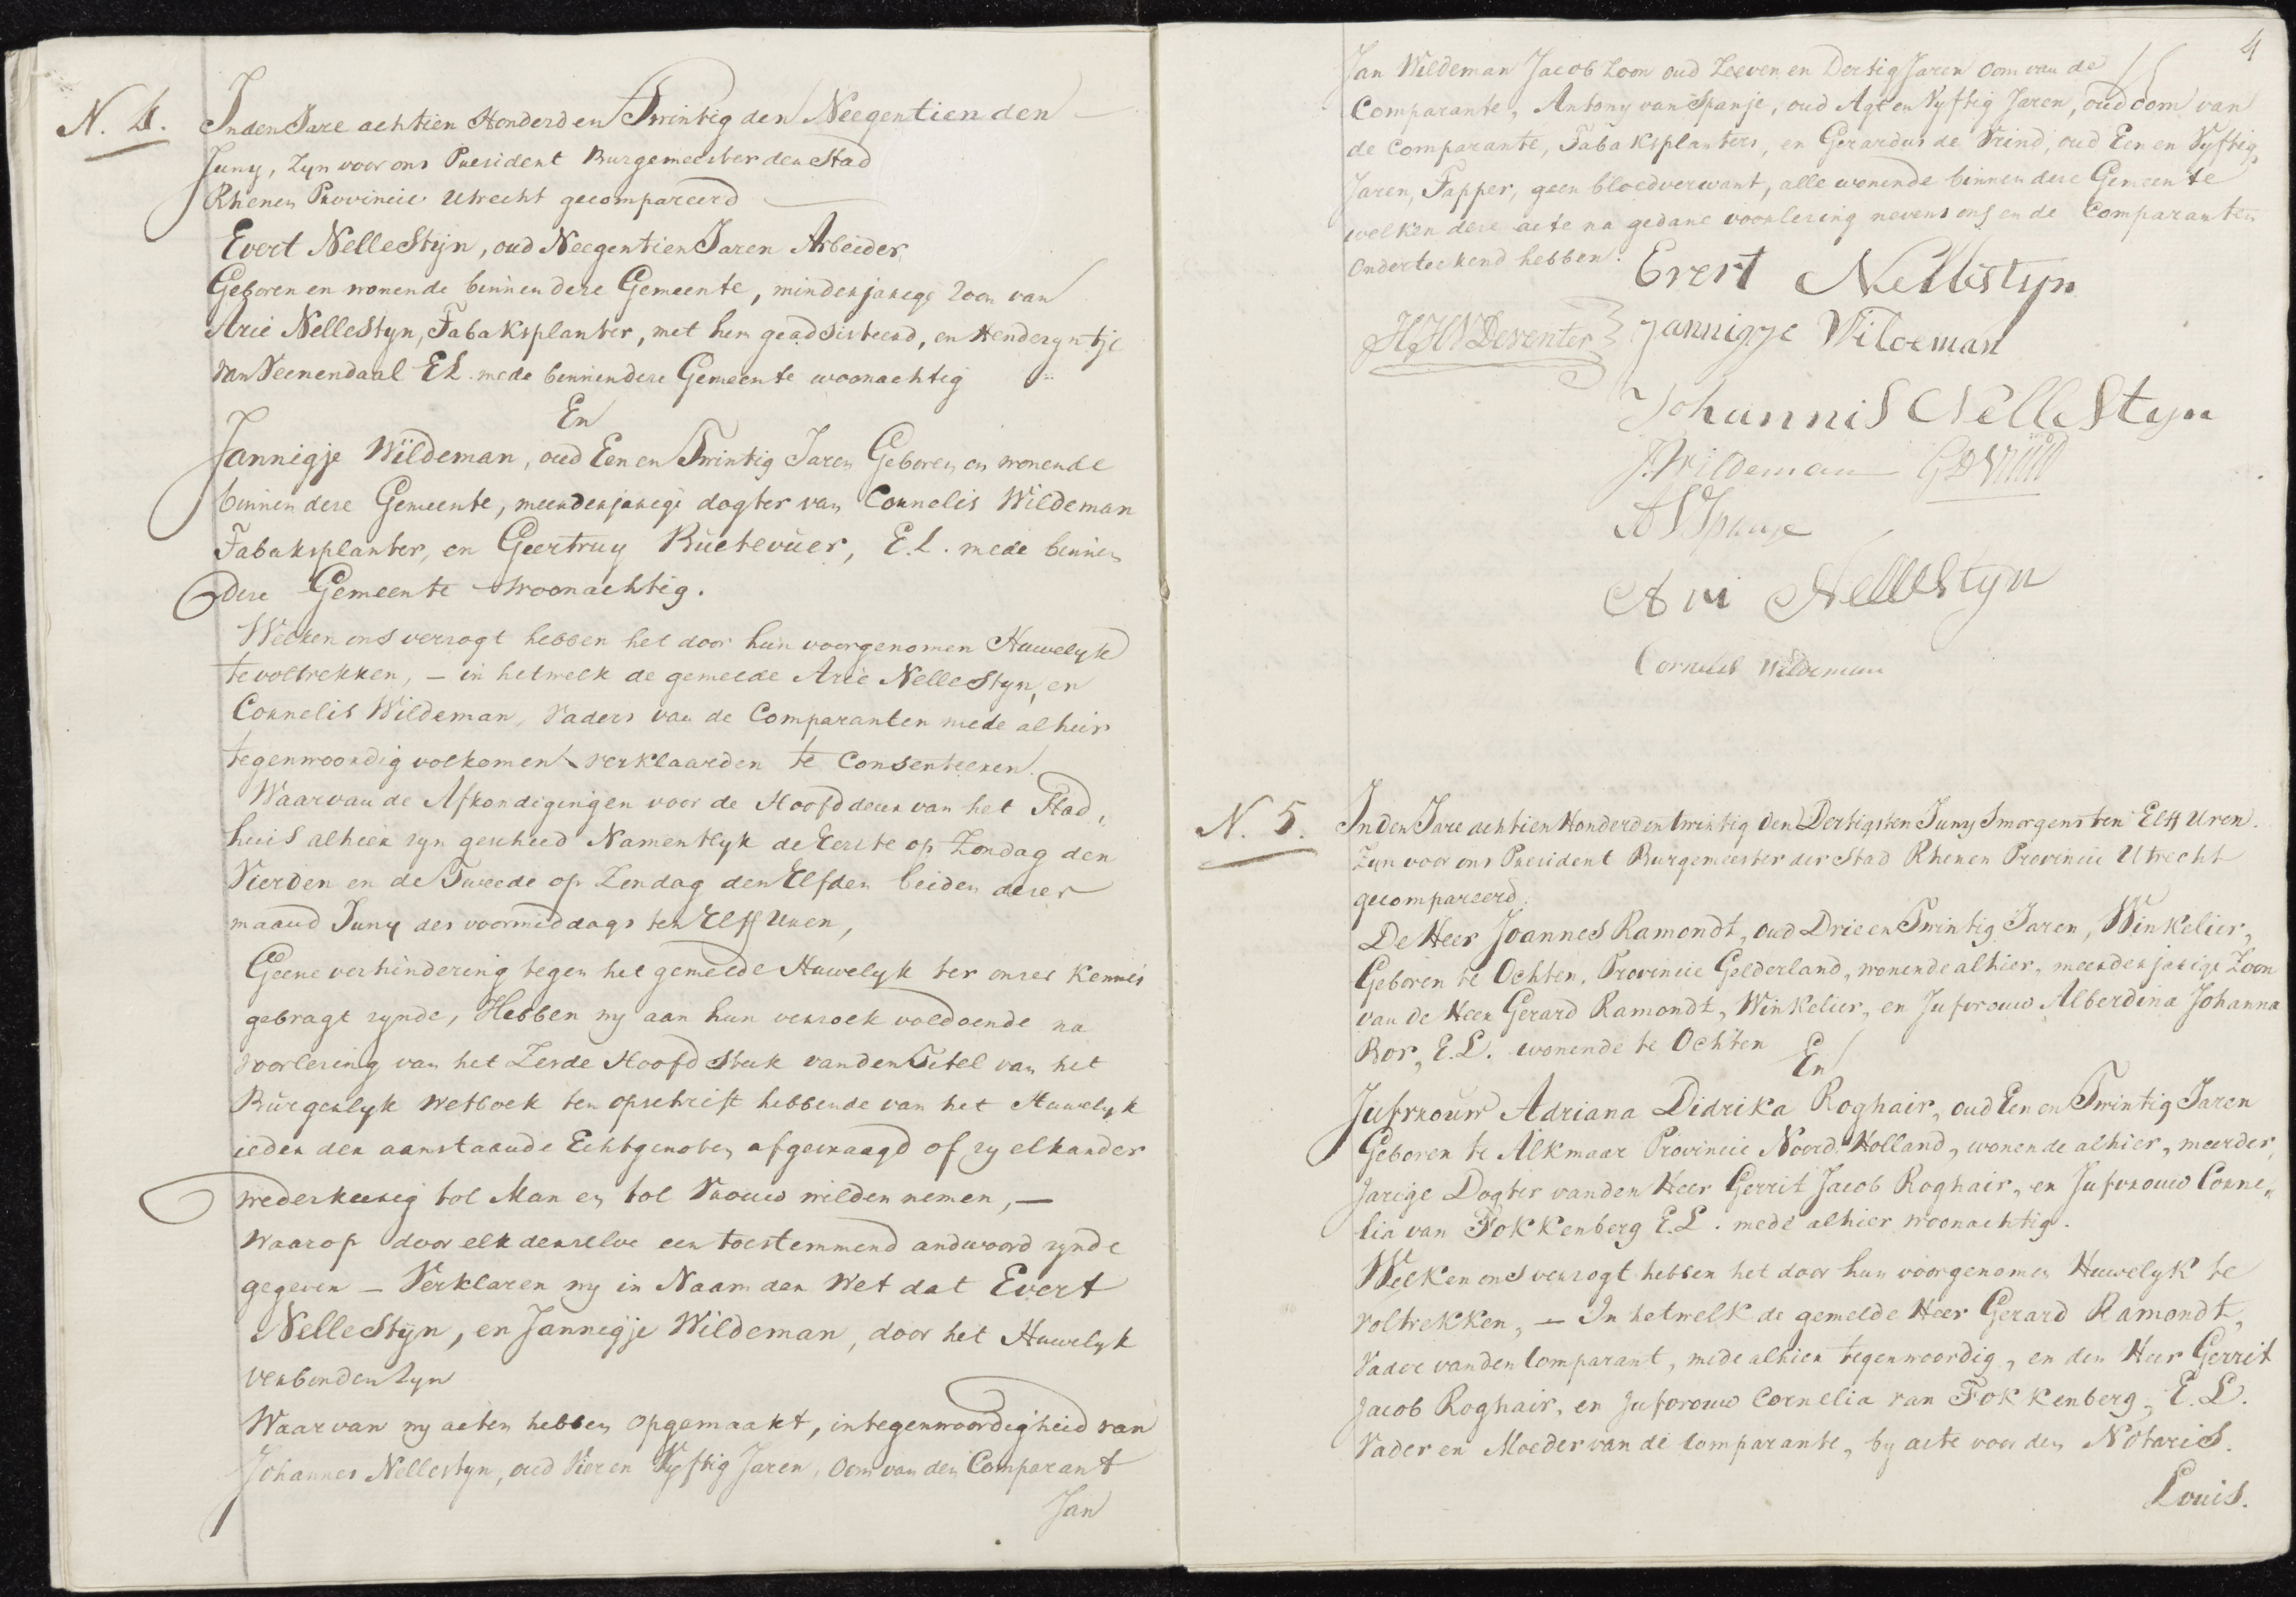 N. 4.
In den Jare achtien Honderd en Twintig den Neegentienden
Juny, Zyn voor ons President Burgemeester der Stad
Rhenen Provincie Utrecht gecompareerd
Evert NelleStÿn, oud Neegentien Jaren Arbeider
Geboren en wonende binnen dese Gemeente, minderjarege Zoon van
Arie NelleStyn, Tabaksplanter, met hem geadsisteerd, en Henderyntje
van Veenendaal EL. mede binnen dese Gemeente woonachtig
En
Jannigje Wïldeman, oud Een en Twintig Jaren Geboren en wonende
binnen dese Gemeente, meerderjarege dogter van Cornelis Wildeman
Tabaksplanter, en Geertruy Rüetevüer, E.L. mede binnen
dese Gemeente woonachtig.
Welken ons versogt hebben het door hun voorgenomen Huwelyk
te voltrekken, — in hetwelk de gemelde Arie NelleStyn, en
Cornelis Wildeman, Vaders van de Comparanten mede alhier
tegenwoordig volkomen verklaarden te Consenteeren.
Waarvan de Afkondigingen voor de Hoofddeur van het Stad,
huis alhier zyn geschied Namentlyk de Eerste op Zondag den
Vierden en de Tweede op Zondag den Elfden beiden deser
maand Juny des voormiddags ten Elff Uren,
Geene verhindering tegen het gemelde Huwelyk ter onser kennis
gebragt zynde, Hebben wy aan hun versoek voldoende na
voorlesing van het Zesde Hoofd Stuk van den Titel van het
Bürgerlyk Wetboek ten opschrift hebbende van het Huwelyk
ieder der aanstaande Echtgenoten afgevraagd of zy elkander
wederkeerig tot Man en tot Vrouw wilden nemen, —
Waarop door elk derselve een toestemmend andwoord zynde
gegeven — Verklaren wy in Naam der Wet dat Evert
NelleStÿn, en Jannigje Wildeman, door het Huwelyk
verbonden Zyn
Waarvan wy acten hebben opgemaakt, in tegenwoordigheid van
Johannes Nellestyn, oud Vier en Vyftig Jaren, Oom van den Comparant
Jan
4
Jan Wildeman Jacob Zoon oud Zeeven en Dertig Jaren Oom van de
Comparante, Antony van Spanje, oud Agt en Vyftig Jaren, oud oom van
de Comparante, Tabaksplanters, en Gerardus de Vrind, oud Een en Vyftig
Jaren, Tapper, geen bloedverwant, alle wonende binnen dese Gemeente
welken dese acte na gedane voorlesing nevens ons en de Comparanten
Onderteekend hebben.
Evert Nellestyn
H, H V Deventer
Jannigje Wildeman
Johannis NelleStyn
J. Wildeman
A V Spanje
Ari Nellestyn
Cornelis Wildeman
N. 5.
In den Jare achtien Honderd en twintig den Dertigsten Juny Smorgens ten Elff Uren.
Zyn voor ons President Burgemeester der Stad Rhenen Provincie Utrecht
gecompareerd.
De Heer Joannes Ramondt, oud Drie en Twintig Jaren, Winkelier,
Geboren te Ochten, Provincie Gelderland, wonende alhier, meerderjarige Zoon
van de Heer Gerard Ramondt, Winkelier, en Jufvrouw Alberdina Johanna
Bor, E.L. wonende te Ochten
En
Jufvrouw Adriana Didrika Roghair, oud Een en Twintig Jaren
Geboren te Alkmaar Provincie Noord Holland, wonende alhier, meerder,
Jarige Dogter van den Heer Gerrit Jacob Roghair, en Jufvrouw Corne„
lia van Fokkenberg E.L. mede alhier woonachtig.
Welken ons versogt hebben het door hun voorgenomen Huwelyk te
voltrekken, — In hetwelk de gemelde Heer Gerard Ramondt,
Vader van den Comparant, mede alhier tegenwoordig, en den Heer Gerrit
Jacob Roghair, en Jufvrouw Cornelia van Fokkenberg, E.L.
Vader en Moeder van de Comparante, by acte voor den Notaris.
Louis.